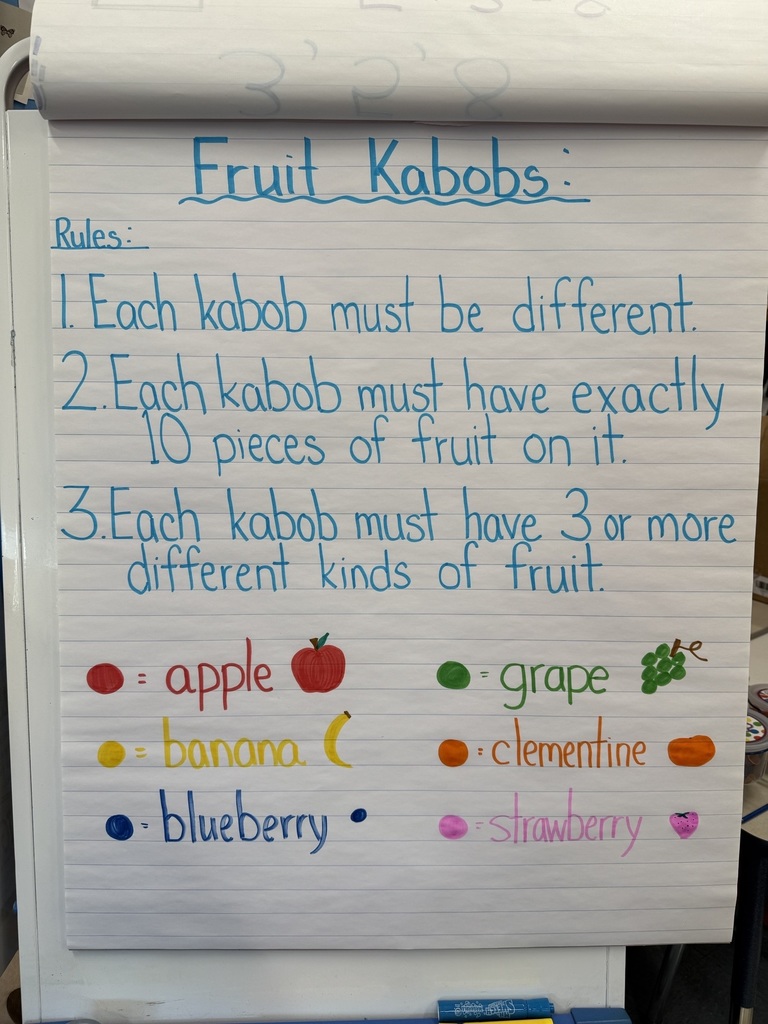 Fruit Kabobs:
Rules:
1. Each kabob must be different.
2. Each kabob must have exactly
10 pieces of fruit on it.
3. Each kabob must have 3 or more
different kinds of fruit.
= apple
= grape
= banana
= clementine
= blueberry
= strawberry